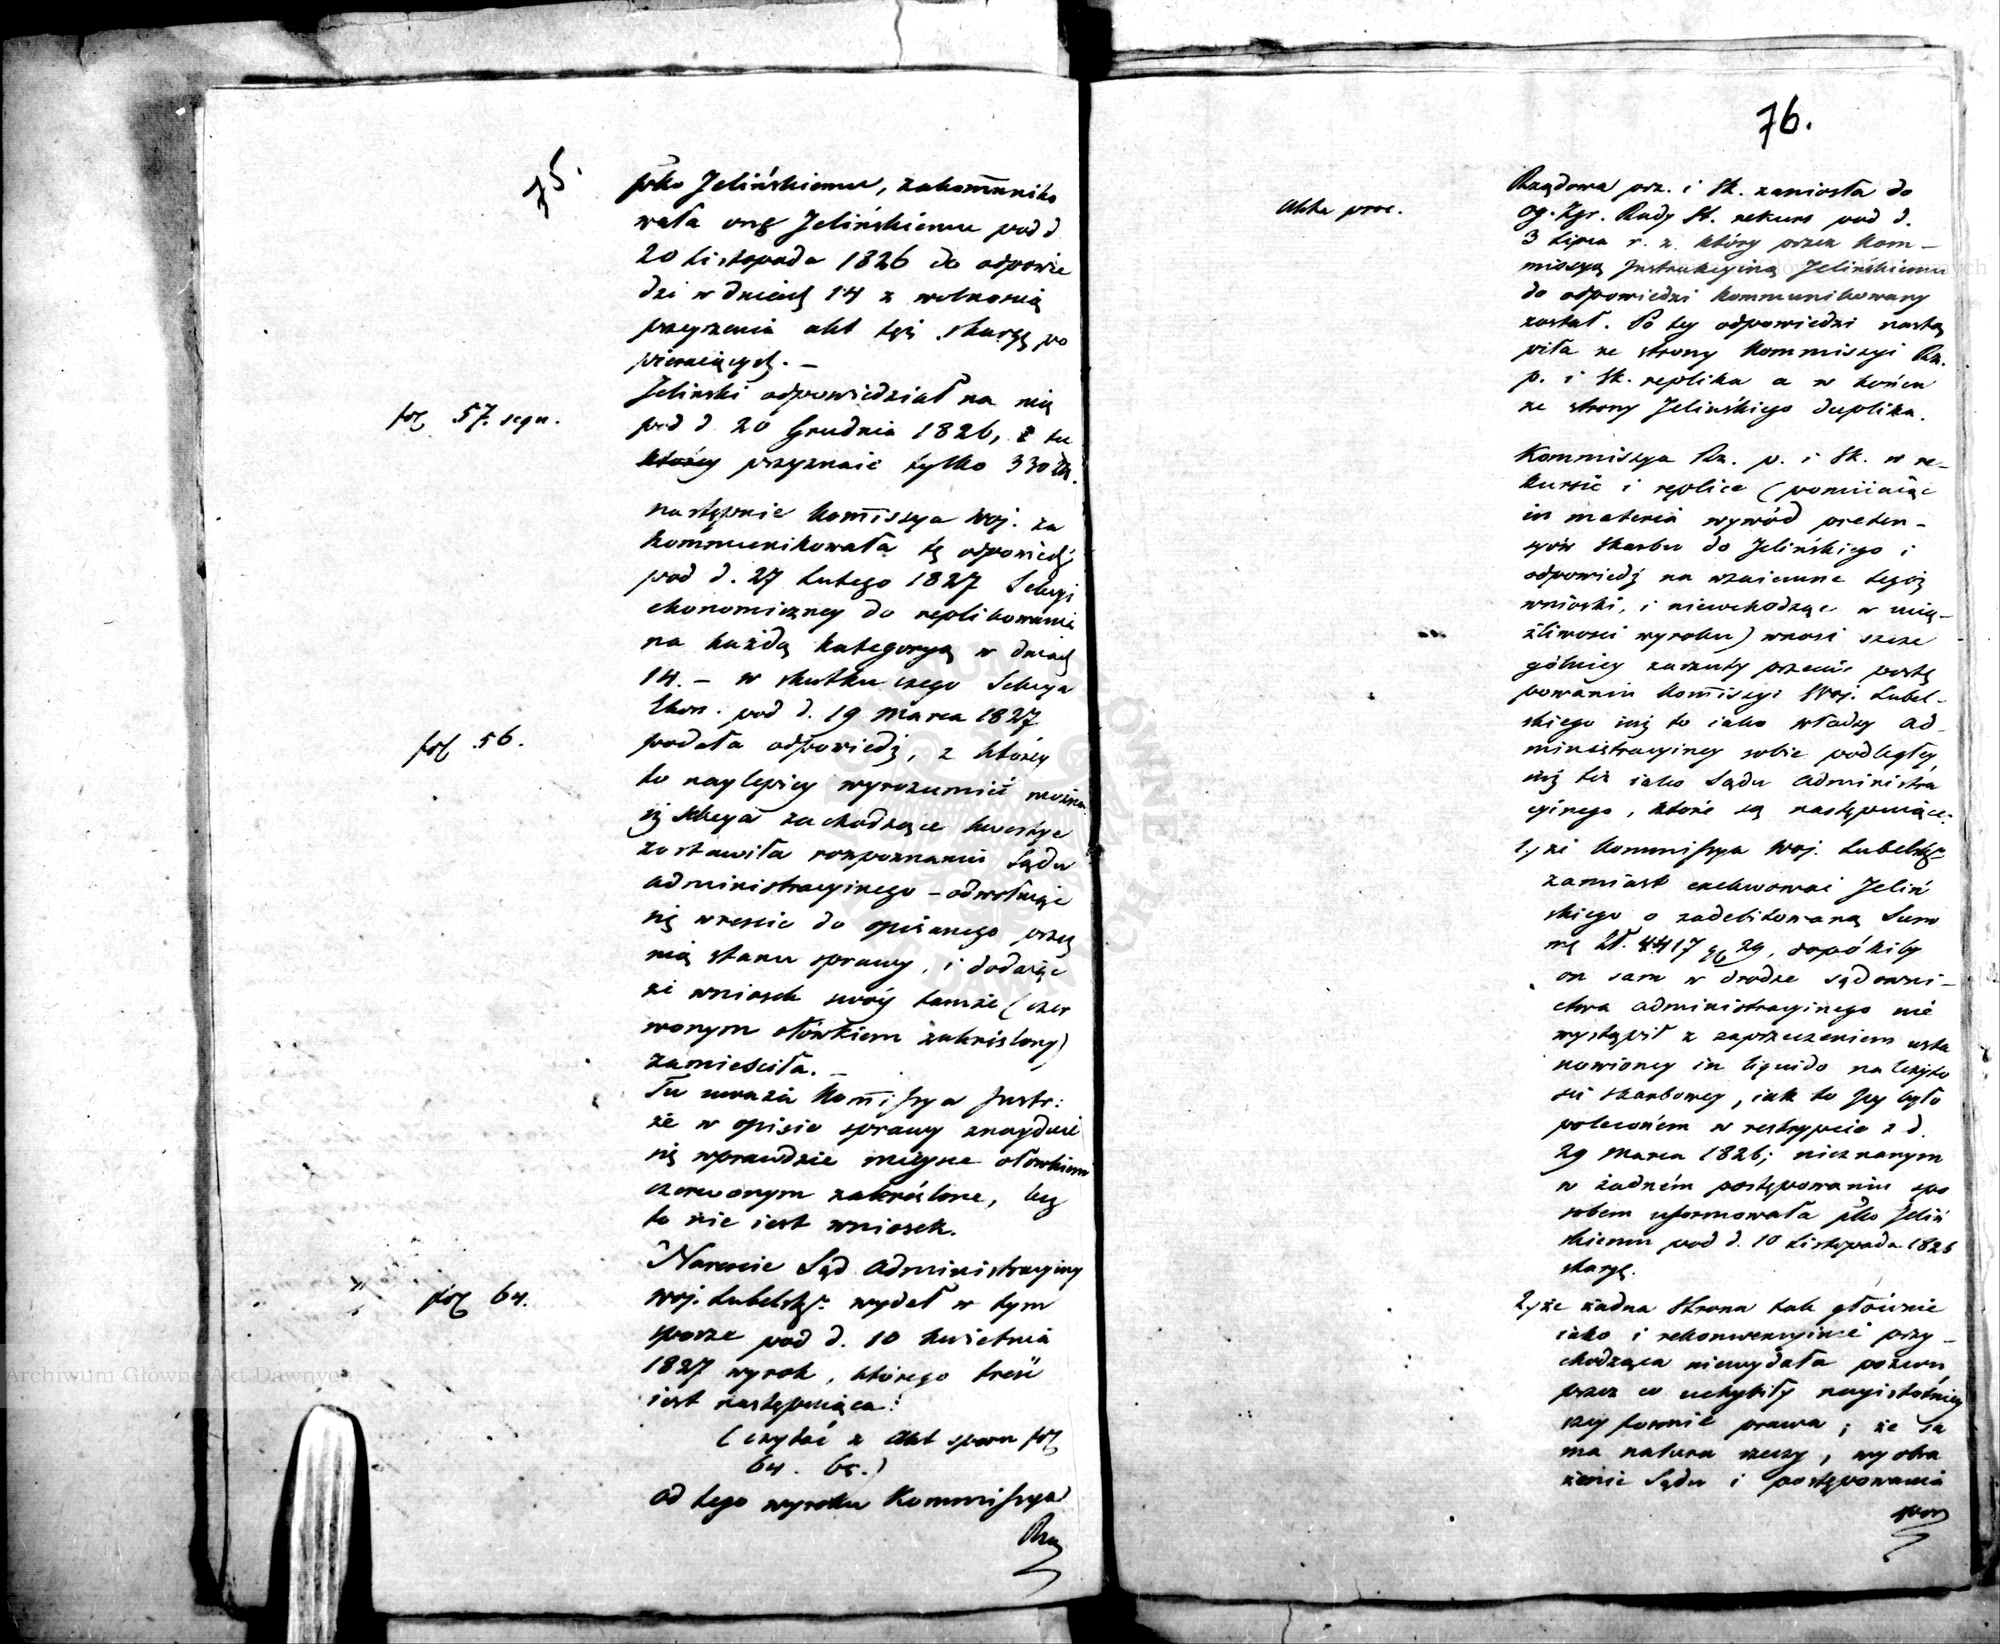 75.
pko Jelińskiemu, zakom̄uniko
wała onę Jelińskiemu pod d
20 Listopada 1826 do odpowie
dzi w dniach 14 z wolnością
przeyrzenia akt tęż skargę po
pieraiących. —
Jelinski odpowiedział na nią
fol 57. sequ.
pod d. 20 Grudnia 1826, i tu
przyznaie tylko 330 Zł.
następnie Kom̄issya Woj. za
kommunikowała tę odpowiedź
pod d. 27 Lutego 1827 Sekcyi
ekonomiczney do replikowania
na każdą kategoryą w dniach
14. — w skutku czego Sekcya
Ekon. pod d. 19 Marca 1827
fol 56.
podała odpowiedź, z którey
to naylepiey wyrozumieć można
iż Sekcya zachodzące kwestye
zostawiła rozpoznaniu Sądu
administracyinego – odwołuiąc
się wreście do opisanego przez
nią stanu sprawy, i dodaiąc
że wniosek swóy tamże (czer
wonym ołówkiem zakreślony)
zamieściła. —
Tu uważa Kom̄issya Instr:
że w opisie sprawy znayduie
się wprawdzie mieysce ołówkiem
czerwonym zakréślone, lecz
to nie iest wniosek.
Nareście Sąd Administracyiny
fol 64.
Woj. Lubelskgo wydał w tym
sporze pod d. 10 Kwietnia
1827 wyrok, którego treść
iest następuiąca:
(czytać z Akt sporu fol
64. 65.)
Od tego wyroku Kommissya
Rzą
76.
Akta proc.
Rządowa prz. i Sk. zaniosła do
Og. Zgr. Rady St. rekurs pod d.
3 Lipca r. z. który przez Kom–
missyą Instrukcyiną Jelińskiemu
do odpowiedzi kommunikowany
został. Po tey odpowiedzi nastą
piła ze strony Kommissyi Rz.
p. i Sk. replika a w końcu
ze strony Jelińskiego duplika.
Kommissya Rz. p. i Sk. w re–
kursie i replice (pomiiaiąc
in materia wywód preten–
syów Skarbu do Jelińskiego i
odpowiedź na wzaiemne tegoż
wnioski, i niewchodząc w ucią–
żliwości wyroku) wnosi szcze
gólniey zarzuty przeciw postę
powaniu Kom̄issyi Woj. Lubel–
skiego iuż to iako władzy ad–
ministracyiney sobie podległey,
iuż też iako Sądu administra
cyinego, które są następuiące:
1.) że Kommissya Woj. Lubelskgo
zamiast exekwować Jeliń
skiego o zadebitowaną Sum
mę Zł. 4417 gr 29, dopókiby
on sam w drodze sądowni–
ctwa administracyinego nie
wystąpił z zaprzeczeniem usta
nowioney in liquido należyto
ści skarbowey, iak to Jey było
poleconém w reskrypcie z d.
29 Marca 1826; nieznanym
w żadném postępowaniu spo
sobem uformowała pko Jeliń
skiemu pod d. 10 Listopada 1826
skargę.
2.) że żadna Strona tak głównie
iako i rekonwencyinie przy–
chodząca niewydała pozwu
przez co uchybiły nayistotniey
szey formie prawa; że sa
ma natura rzeczy, wyobra
żenie Sądu i postępowania
Archiwum Główne Akt Dawnych